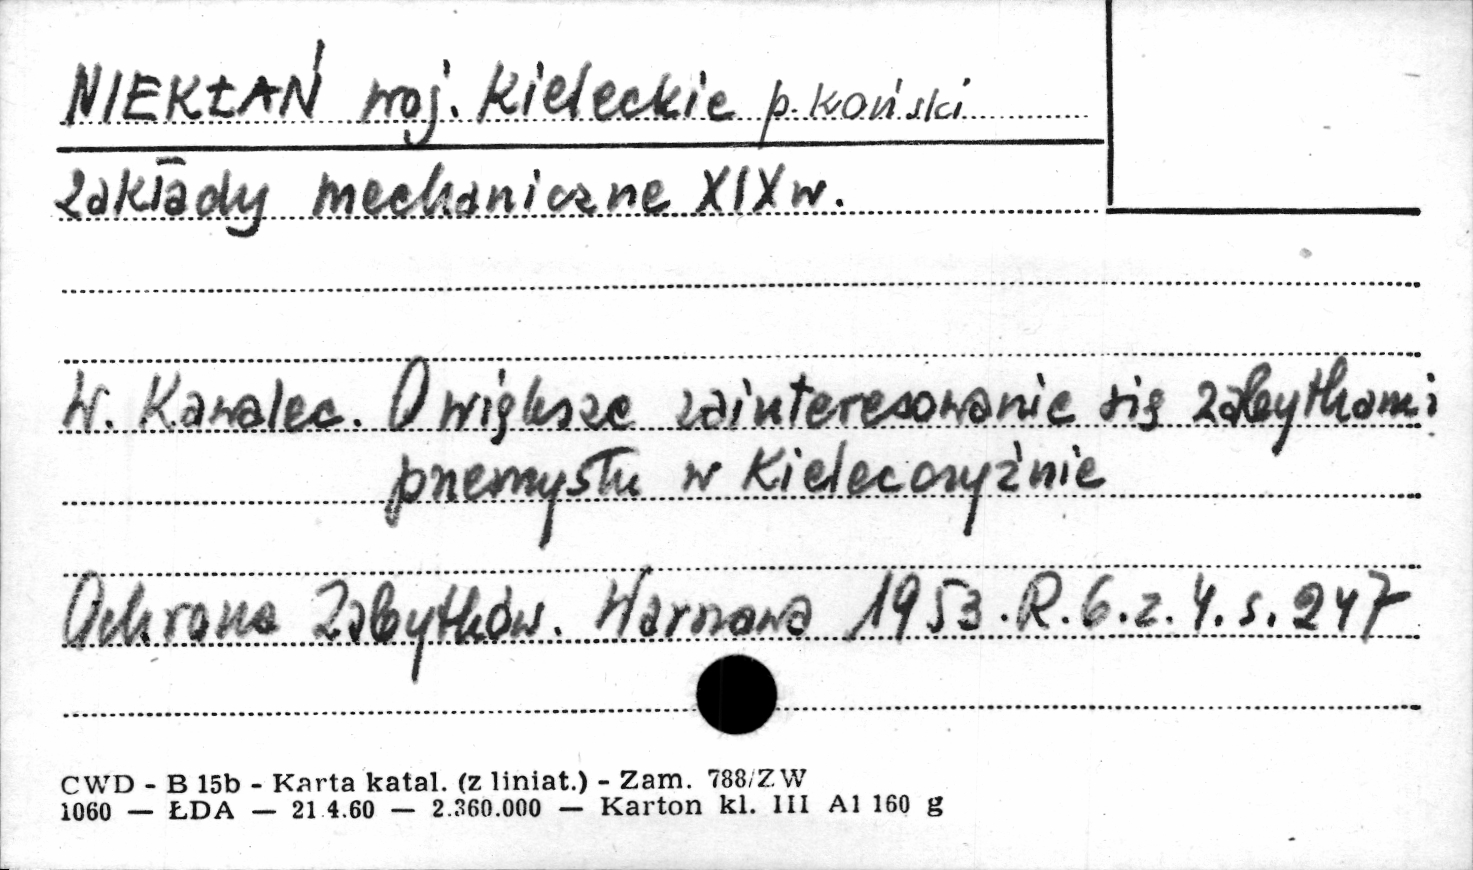 NIEKŁAŃ woj. Kieleckie p. koński
zakłady mechaniczne XIX w.
W. Kawalec. O większe zainteresowanie się zabytkami
przemysłu w Kielecczyźnie
Ochrona Zabytków. Warszawa 1953. R. 6. z. 4. s. 247
CWD - B 15b - Karta katal. (z liniat.) - Zam. 788/ZW
1060 — ŁDA — 21.4.60 — 2.360.000 — Karton kl. III A1 160 g